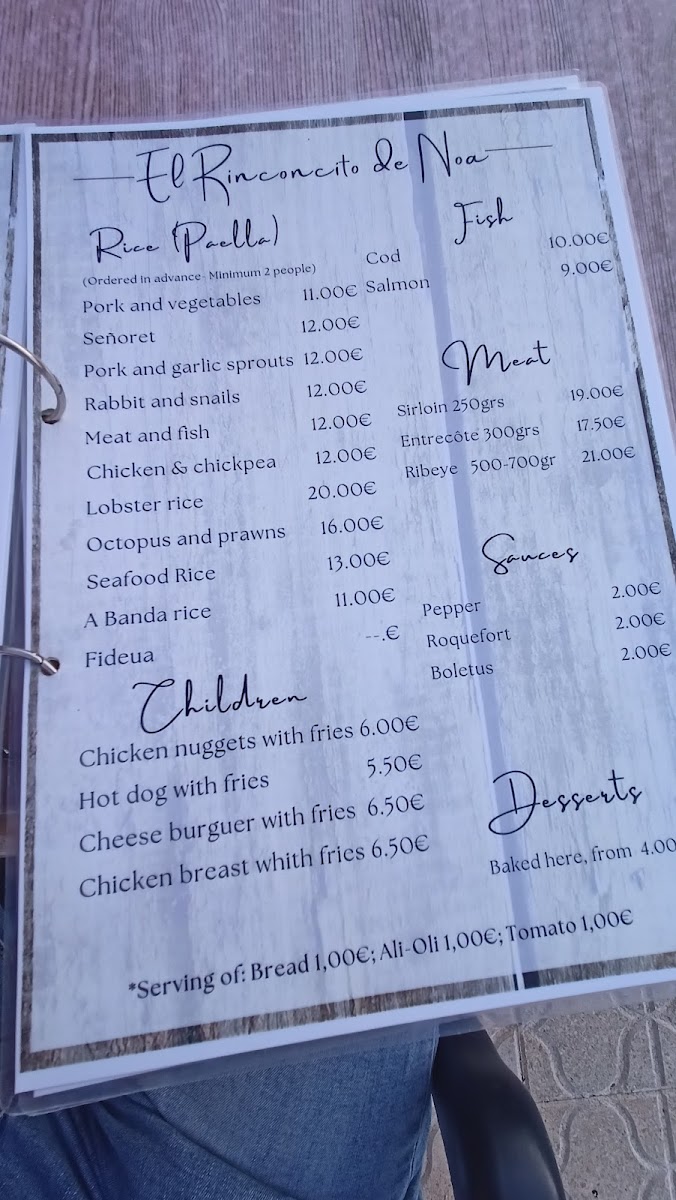 El Rinconcito de Noa
Rice (Paella)
(Ordered in advance- Minimum 2 people)
Pork and vegetables 11.00€
Señoret 12.00€
Pork and garlic sprouts 12.00€
Rabbit and snails 12.00€
Meat and fish 12.00€
Chicken & chickpea 12.00€
Lobster rice 20.00€
Octopus and prawns 16.00€
Seafood Rice 13.00€
A Banda rice 11.00€
Fideua --.€
Children
Chicken nuggets with fries 6.00€
Hot dog with fries 5.50€
Cheese burguer with fries 6.50€
Chicken breast whith fries 6.50€
Fish
Cod 10.00€
Salmon 9.00€
Meat
Sirloin 250grs 19.00€
Entrecôte 300grs 17.50€
Ribeye 500-700gr 21.00€
Sauces
Pepper 2.00€
Roquefort 2.00€
Boletus 2.00€
Desserts
Baked here, from 4.00
*Serving of: Bread 1,00€; Ali-Oli 1,00€; Tomato 1,00€